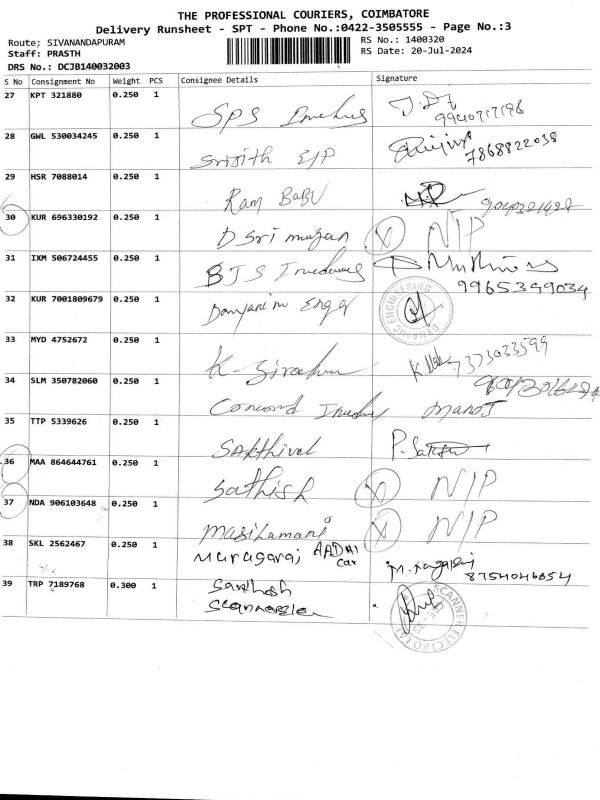 THE PROFESSIONAL COURIERS, COIMBATORE
Delivery Runsheet - SPT - Phone No.:0422-3505555 - Page No.:3
Route; SIVANANDAPURAM
RS No.: 1400320
Staff: PRASTH
RS Date: 20-Jul-2024
DRS No.: DCJB140032003
S No Consignment No Weight PCS Consignee Details Signature
27 KPT 321880 0.250 1 SPS
9940717196
28 GWL 530034245 0.250 1 Srijith E/P
7868822038
29 HSR 7088014 0.250 1 Ram Babu
30 KUR 696330192 0.250 1 D Sri mugan X N/P
31 IXM 506724455 0.250 1 BJS
9965399034
32 KUR 7001809679 0.250 1 Engg
DYNAMIC ENGINEERING
33 MYD 4752672 0.250 1 K.
7373033599
34 SLM 350782060 0.250 1 Concord ManoJ
35 TTP 5339626 0.250 1 Sakthivel
36 MAA 864644761 0.250 1 Sathish X N/P
37 NDA 906103648 0.250 1 Masilamani X N/P
38 SKL 2562467 0.250 1 Muragaraj AADHI Car
8754046854
39 TRP 7189768 0.300 1 Santhosh
SCANNER ELECTRO